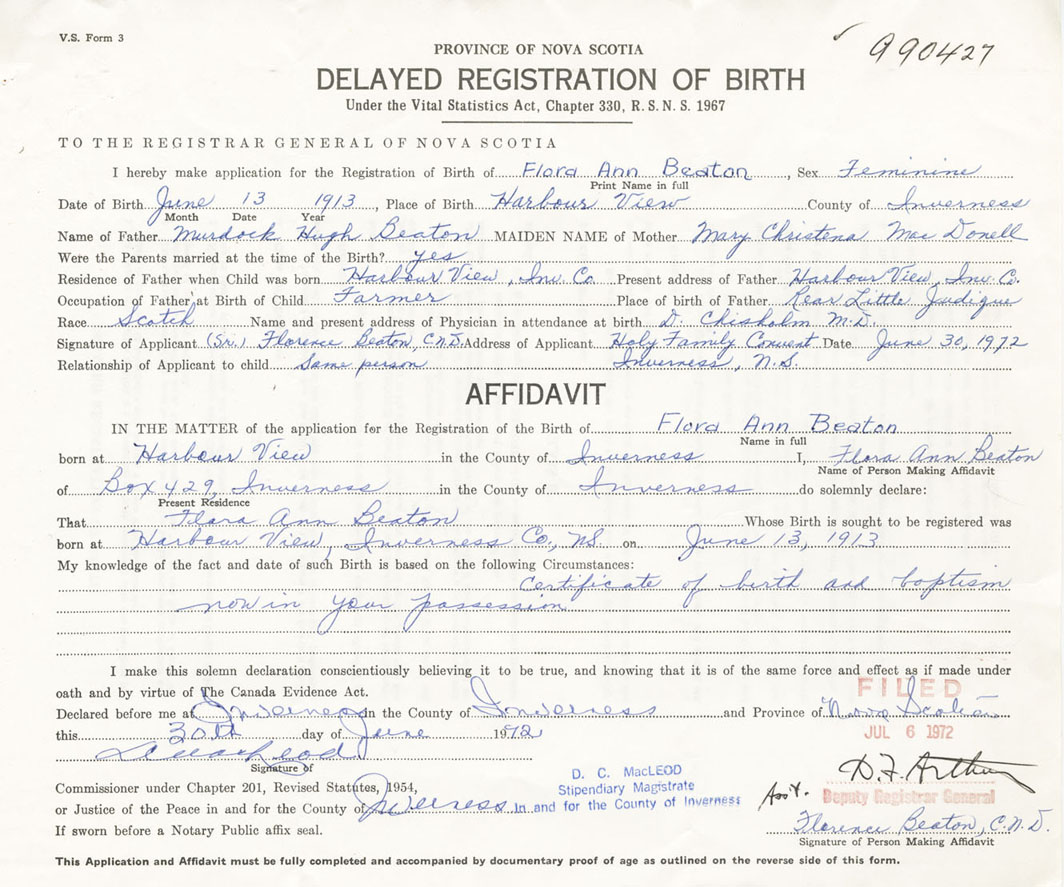 V.S. Form 3
990427
PROVINCE OF NOVA SCOTIA
DELAYED REGISTRATION OF BIRTH
Under the Vital Statistics Act, Chapter 330, R.S.N.S. 1967
TO THE REGISTRAR GENERAL OF NOVA SCOTIA
I hereby make application for the Registration of Birth of Flora Ann Beaton, Sex Feminine
Print Name in full
Date of Birth June 13 1913, Place of Birth Harbour View County of Inverness
Month Date Year
Name of Father Murdock Hugh Beaton MAIDEN NAME of Mother Mary Christena Mac Donell
Were the Parents married at the time of the Birth? yes
Residence of Father when Child was born Harbour View, Inv. Co. Present address of Father Harbour View, Inv. Co.
Occupation of Father at Birth of Child Farmer Place of birth of Father Rear Little Judique
Race Scotch Name and present address of Physician in attendance at birth D. Chisholm M.D.
Signature of Applicant (Sr.) Florence Beaton, C.N.D. Address of Applicant Holy Family Convent Date June 30, 1972
Relationship of Applicant to child Same person Inverness, N.S.
AFFIDAVIT
IN THE MATTER of the application for the Registration of the Birth of Flora Ann Beaton
Name in full
born at Harbour View in the County of Inverness I, Flora Ann Beaton
Name of Person Making Affidavit
of Box 429, Inverness in the County of Inverness do solemnly declare:
Present Residence
That Flora Ann Beaton Whose Birth is sought to be registered was
born at Harbour View, Inverness Co., NS. on June 13, 1913
My knowledge of the fact and date of such Birth is based on the following Circumstances:
Certificate of birth and baptism
now in your possession
I make this solemn declaration conscientiously believing it to be true, and knowing that it is of the same force and effect as if made under
oath and by virtue of The Canada Evidence Act.
FILED
Declared before me at Inverness in the County of Inverness and Province of Nova Scotia
this 30th day of June 1972
JUL 6 1972
Signature of
D. F. Arthur
Commissioner under Chapter 201, Revised Statutes, 1954,
D. C. MacLEOD
Stipendiary Magistrate
Ass't. Deputy Registrar General
or Justice of the Peace in and for the County of Inverness In and for the County of Inverness
If sworn before a Notary Public affix seal.
Florence Beaton, C.N.D.
Signature of Person Making Affidavit
This Application and Affidavit must be fully completed and accompanied by documentary proof of age as outlined on the reverse side of this form.